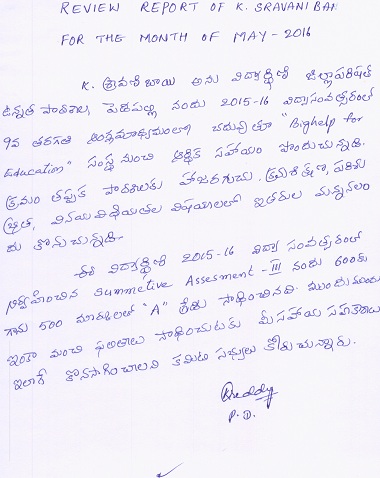 REVIEW REPORT OF K. SRAVANI BAI
FOR THE MONTH OF MAY - 2016
K. శ్రావణి బాయి అను విద్యార్థిని జిల్లాపరిషత్
ఉన్నత పాఠశాల, పెదపల్లి నందు 2015-16 విద్యాసంవత్సరంలో
9వ తరగతి ఆంధ్రమాధ్యమంలో చదువుతూ "Bighelp for
Education" సంస్థ నుంచి ఆర్థిక సహాయం పొందుచున్నది.
క్రమం తప్పక పాఠశాలకు హాజరగుచు, క్రమశిక్షణ, పరిశు
భ్రత, వినయ విధేయతల విషయాలలో ఇతరుల మన్ననలం
దు కొనుచున్నది.
ఈ విద్యార్థిని 2015-16 విద్యా సంవత్సరంలో
నిర్వహించిన Summetive Assesment - III నందు 600కు
గాను 500 మార్కులతో "A" గ్రేడు సాధించినది. ముందుముందు
ఇంకా మంచి ఫలితాలు సాధించుటకు మీ సహాయ సహకారాలు
ఇలాగే కొనసాగించాలని కమిటీ సభ్యులు కోరుచున్నారు.
Reddy
P. D.